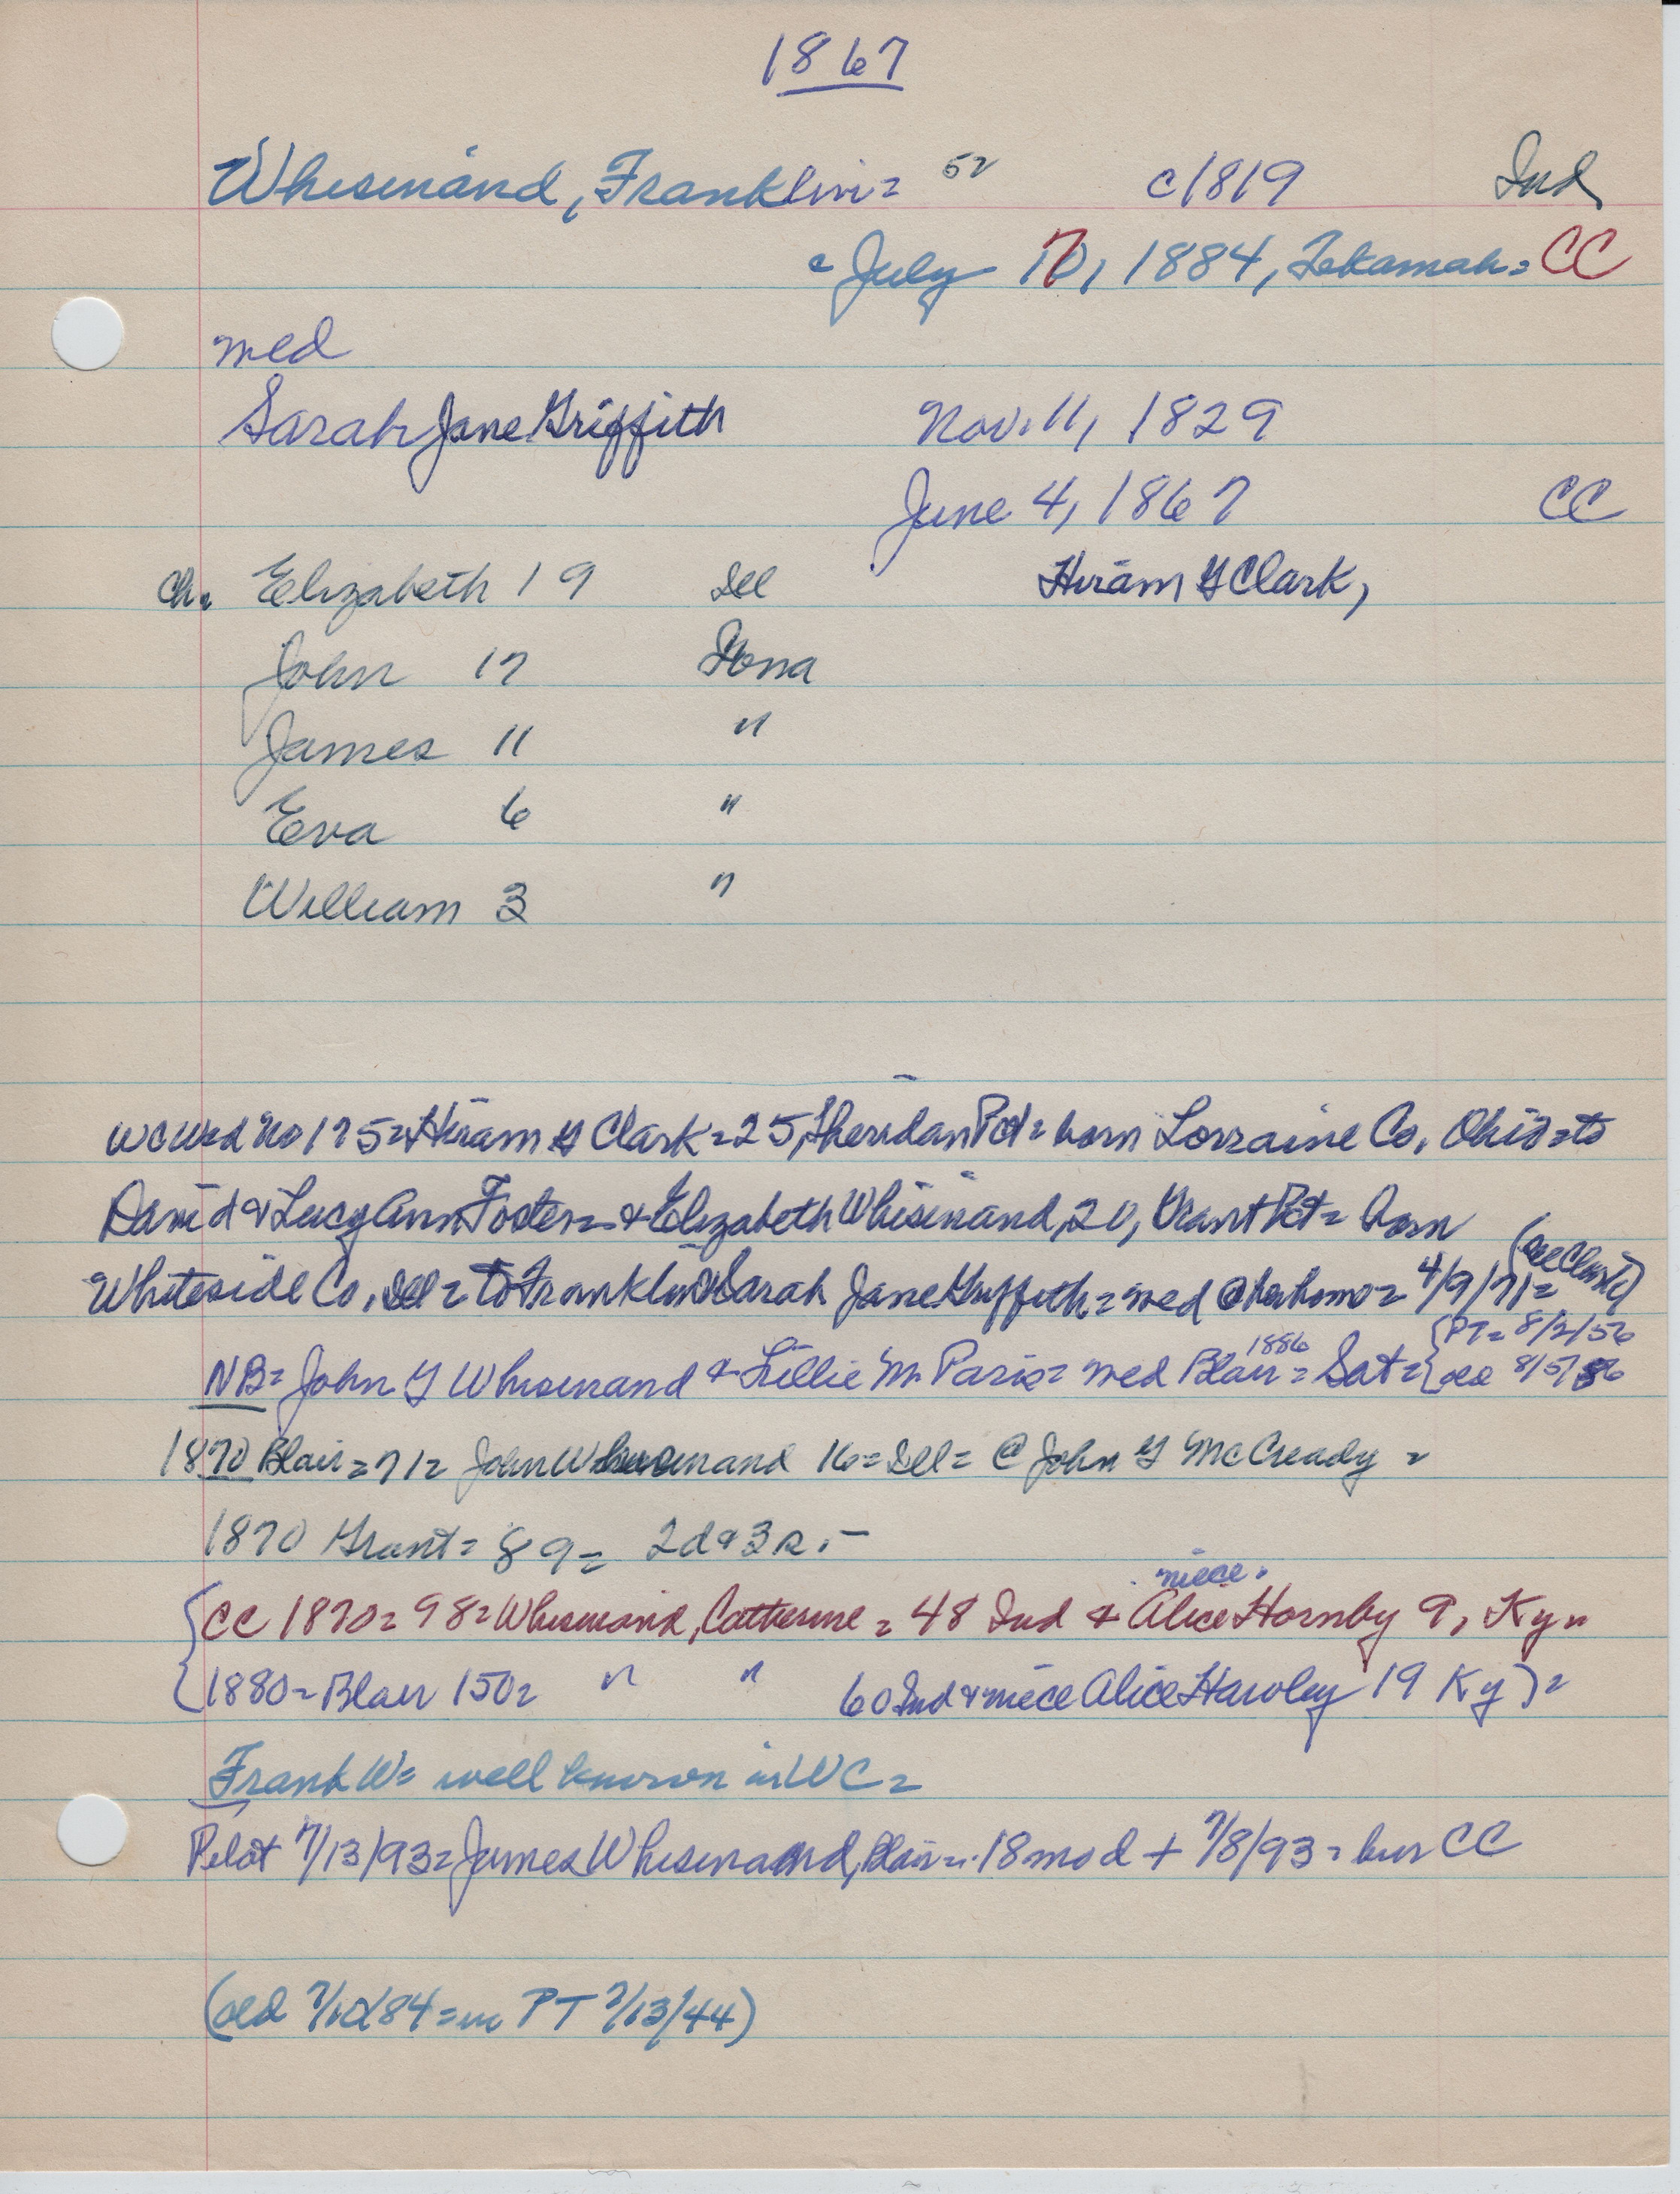 1867
Whisinand, Franklin = 52 c1819 Ind
c July 10, 1884, Tekamah = CC
med
Sarah Jane Griffith Nov. 11, 1829
June 4, 1867 CC
ch. Elizabeth 19 Ill Hiram G Clark,
John 17 Iowa
James 11 "
Eva 6 "
William 3 "
WC Wed No 175 = Hiram G Clark = 25, Sheridan Pct = born Lorraine Co, Ohio = to
David & Lucy Ann Foster = & Elizabeth Whisinand, 20, Grant Pct = born
Whiteside Co, Ill = to Franklin & Sarah Jane Griffith = med @ her home = 4/9/71 = (see Clark)
NB = John G Whisinand & Lillie M Paris = med Blair 1886 = Sat = {PT = 8/2/56
see 8/5/86
1870 Blair = 71 = John Whisenand 16 = Ill = @ John G McCready =
1870 Grant = 89 = 2d & 3 s. -
{CC 1870 = 98 = Whisinand, Catherine = 48 Ind & niece Alice Hornby 9, Ky =
1880 = Blair 150 = " " 60 Ind & niece Alice Hawley 19 Ky) =
Frank W = well known in WC =
Pilot 7/13/93 = James Whisinand, Blair = 18 mo d + 7/8/93 = bur CC
7/10/84 = in PT 7/13/44)